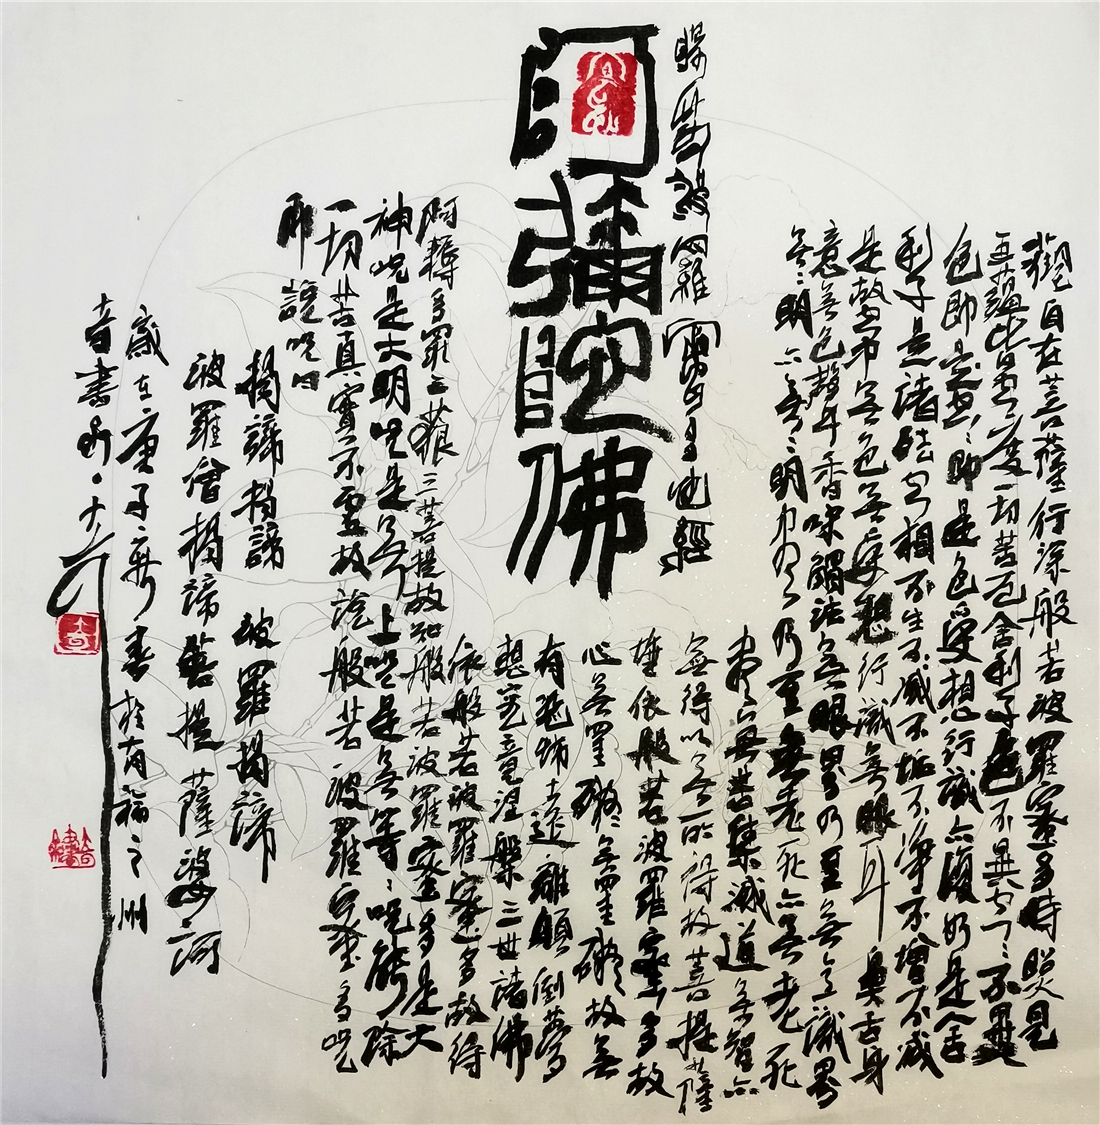 般若波羅蜜多心經
觀自在菩薩行深般若波羅蜜多時照見
五蘊皆空度一切苦厄舍利子色不異空空不異
色色即是空空即是色受想行識亦復如是舍
利子是諸法空相不生不滅不垢不淨不增不減
是故空中無色無受想行識無眼耳鼻舌身
意無色聲香味觸法無眼界乃至無意識界
無無明亦無無明盡乃至無老死亦無老死
盡無苦集滅道無智亦
無得以無所得故菩提薩
埵依般若波羅蜜多故
心無罣礙無罣礙故無
有恐怖遠離顛倒夢
想究竟涅槃三世諸佛
依般若波羅蜜多故得
阿彌陀佛
阿耨多羅三藐三菩提故知般若波羅蜜多是大
神咒是大明咒是無上咒是無等等咒能除
一切苦真實不虛故說般若波羅蜜多咒
即說咒曰
揭諦揭諦 波羅揭諦
波羅僧揭諦菩提薩婆訶
歲在庚子
奇書